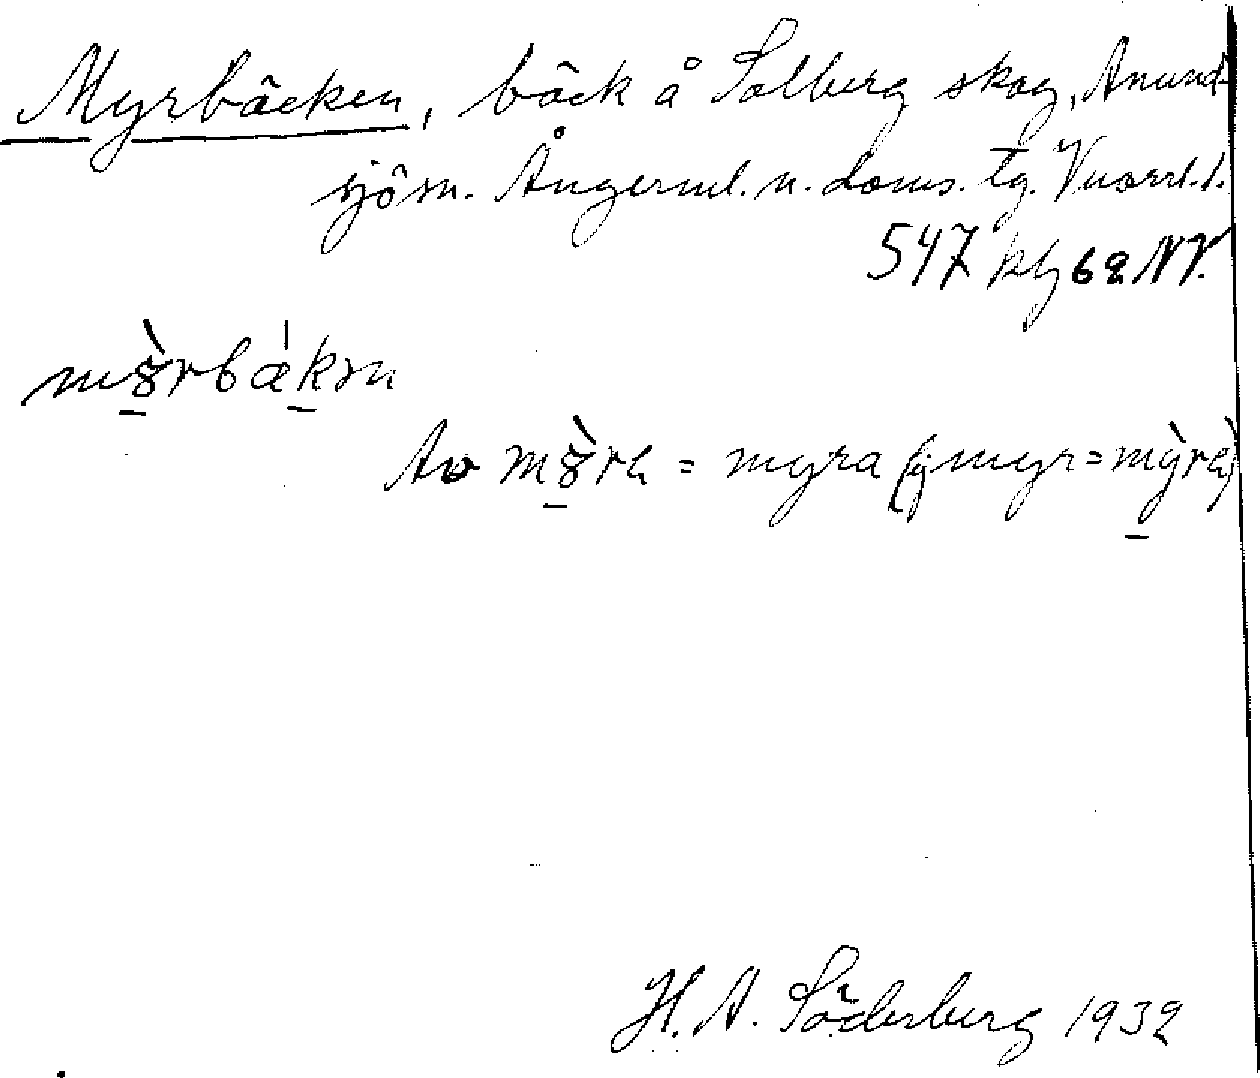 Myrbäcken, bäck å Solberg skog, Anund-
sjö sn. Ångerml. n. doms. tg. Vnorrl. l.
547 kbl 62 NV.
mȣ̀rbækən
Av mȣ̀ra = myra (ej myr = mỳra)
H. A. Söderberg 1932